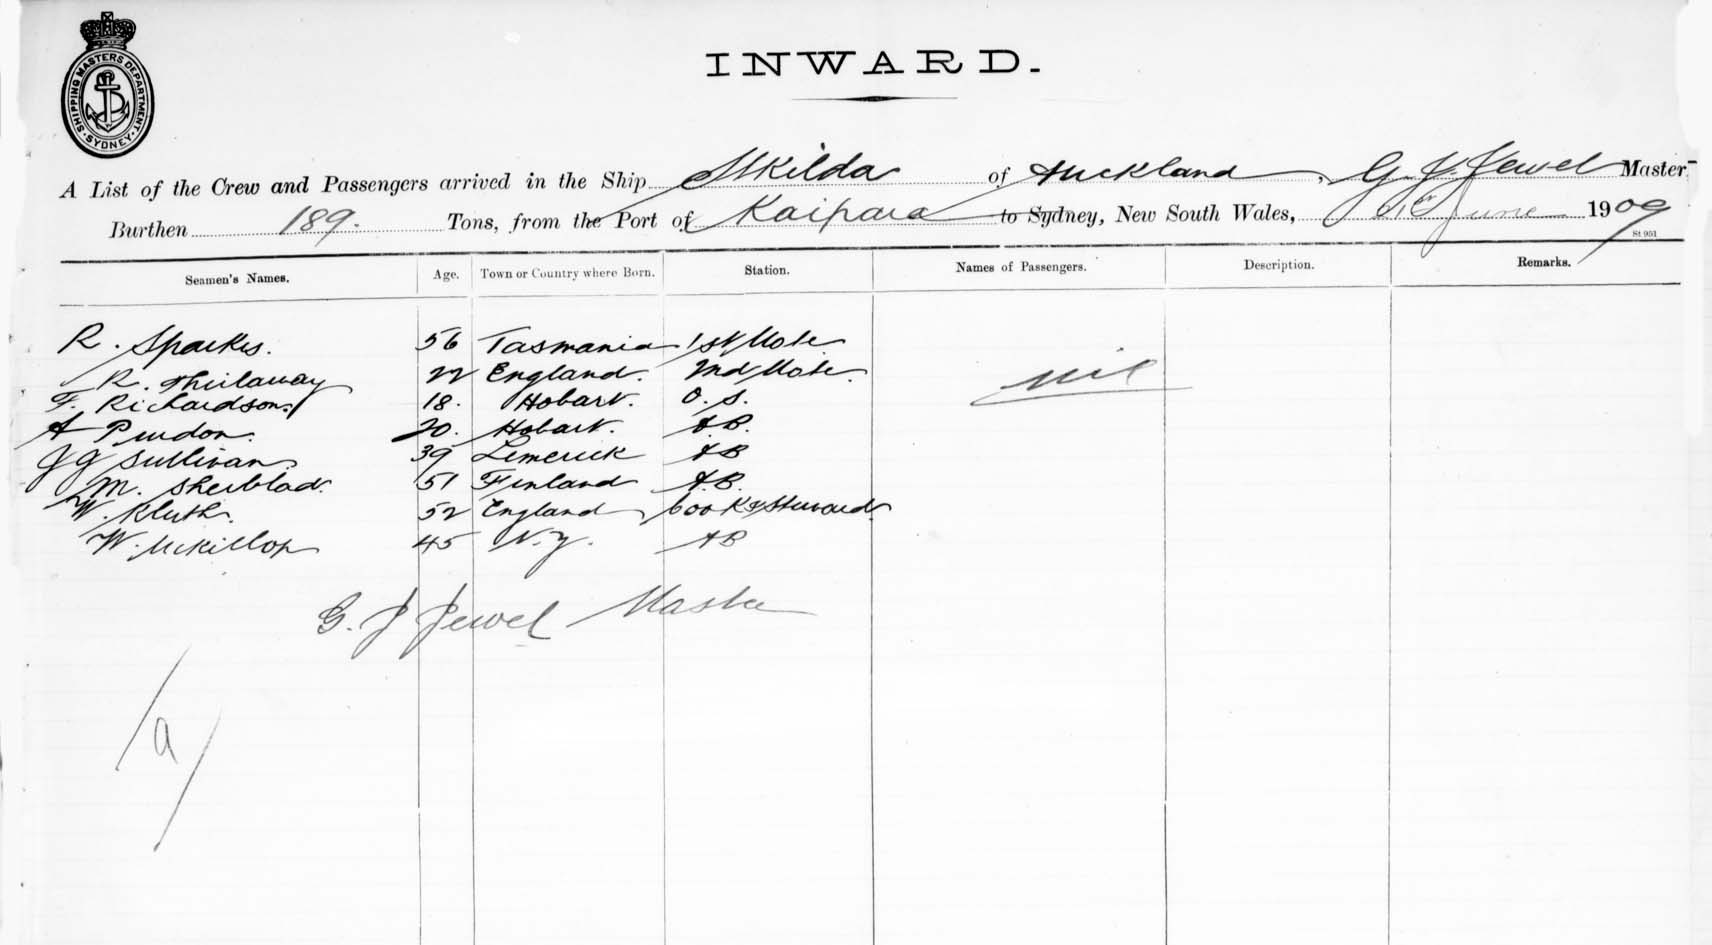 SHIPPING MASTERS DEPARTMENT. SYDNEY.
INWARD.
A List of the Crew and Passengers arrived in the Ship St Kilda of Auckland, G. J. Jewel Master
Burthen 189. Tons, from the Port of Kaipara to Sydney, New South Wales, June 1909
St 951
Seamen's Names. Age. Town or Country where Born. Station. Names of Passengers. Description. Remarks.
R. Sparkes. 56 Tasmania 1st Mate
R. 22 England. 2nd Mate. nil
F. Richardson. 18. Hobart. O.S.
A Purdon. 20. Hobart. A.B.
J G Sullivan. 39 Limerick AB
M. 51 Finland A.B.
W. Kluth. 52 England Cook & Steward.
W. McKillop 45 N.Z. AB
G. J Jewel Master
/a/